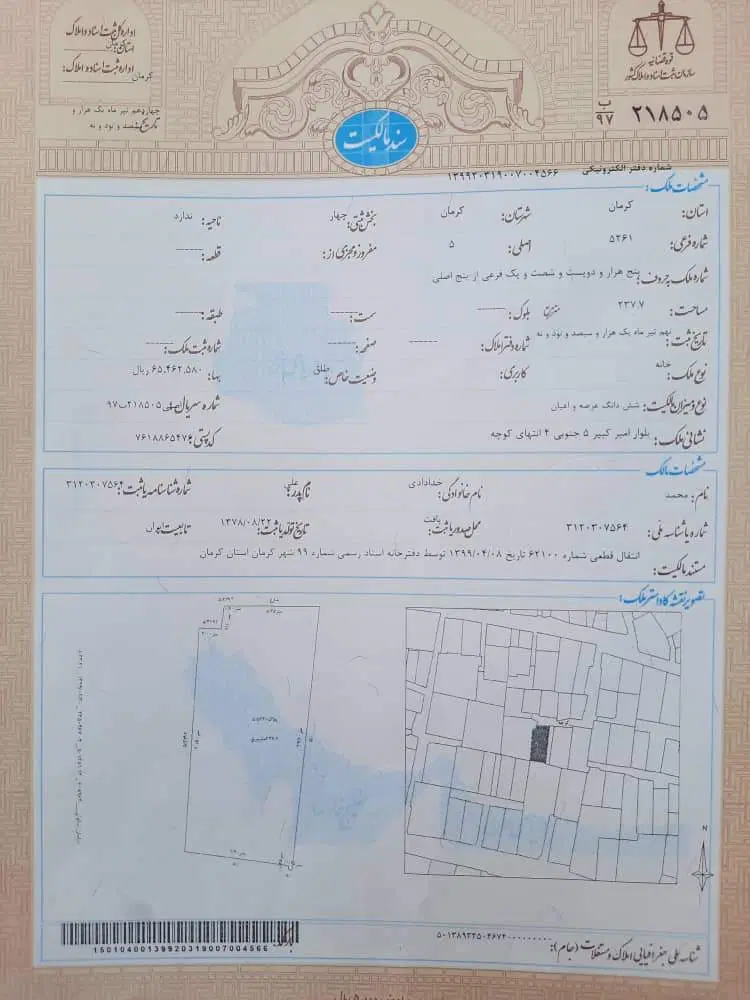 قوه قضائیه
سازمان ثبت اسناد و املاک کشور
اداره کل ثبت اسناد و املاک
استان:
اداره ثبت اسناد و املاک:
کرمان
چهاردهم تیر ماه یک هزار و
تاریخ: سیصد و نود و نه
ب
۹۷ ۲۱۸۵۰۵
سند مالکیت
شماره دفتر الکترونیکی ۱۳۹۹۲۰۳۱۹۰۰۷۰۰۴۵۶۶
مشخصات ملک:
استان: کرمان شهرستان: کرمان بخش ثبتی: چهار ناحیه: ندارد
شماره فرعی: ۵۲۶۱ اصلی: ۵ مفروز و مجزی از: ------ قطعه: ------
شماره ملک به حروف: پنج هزار و دویست و شصت و یک فرعی از پنج اصلی
مساحت: ۲۳۷.۷ مترمربع بلوک: ------ سمت: ------ طبقه: ------
تاریخ ثبت: نهم تیر ماه یک هزار و سیصد و نود و نه شماره دفتر املاک: ------ صفحه: ------ شماره ثبت ملک: ------
نوع ملک: خانه کاربری: وضعیت خاص: طلق بها: ۶۵,۴۶۲,۵۸۰ ریال
نوع و میزان مالکیت: شش دانگ عرصه و اعیان شماره سریال اصلی: ۲۱۸۵۰۵ب۹۷
نشانی ملک: بلوار امیر کبیر ۵ جنوبی ۴ انتهای کوچه کد پستی: ۷۶۱۸۸۶۵۴۷۶
مشخصات مالک
نام: محمد نام خانوادگی: خدادادی نام پدر: علی شماره شناسنامه یا ثبت: ۳۱۲۰۳۰۷۵۶۴
شماره یا شناسه ملی: ۳۱۲۰۳۰۷۵۶۴ محل صدور یا ثبت: بافت تاریخ تولد یا ثبت: ۱۳۷۸/۰۸/۲۲ تابعیت: ایران
مستند مالکیت: انتقال قطعی شماره ۶۲۱۰۰ تاریخ ۱۳۹۹/۰۴/۰۸ توسط دفترخانه اسناد رسمی شماره ۹۹ شهر کرمان استان کرمان
تصویر نقشه کاداستر ملک:
N
شناسه ملی جغرافیایی املاک و مستغلات (جام):
بارکد
150104001399203190070​04566